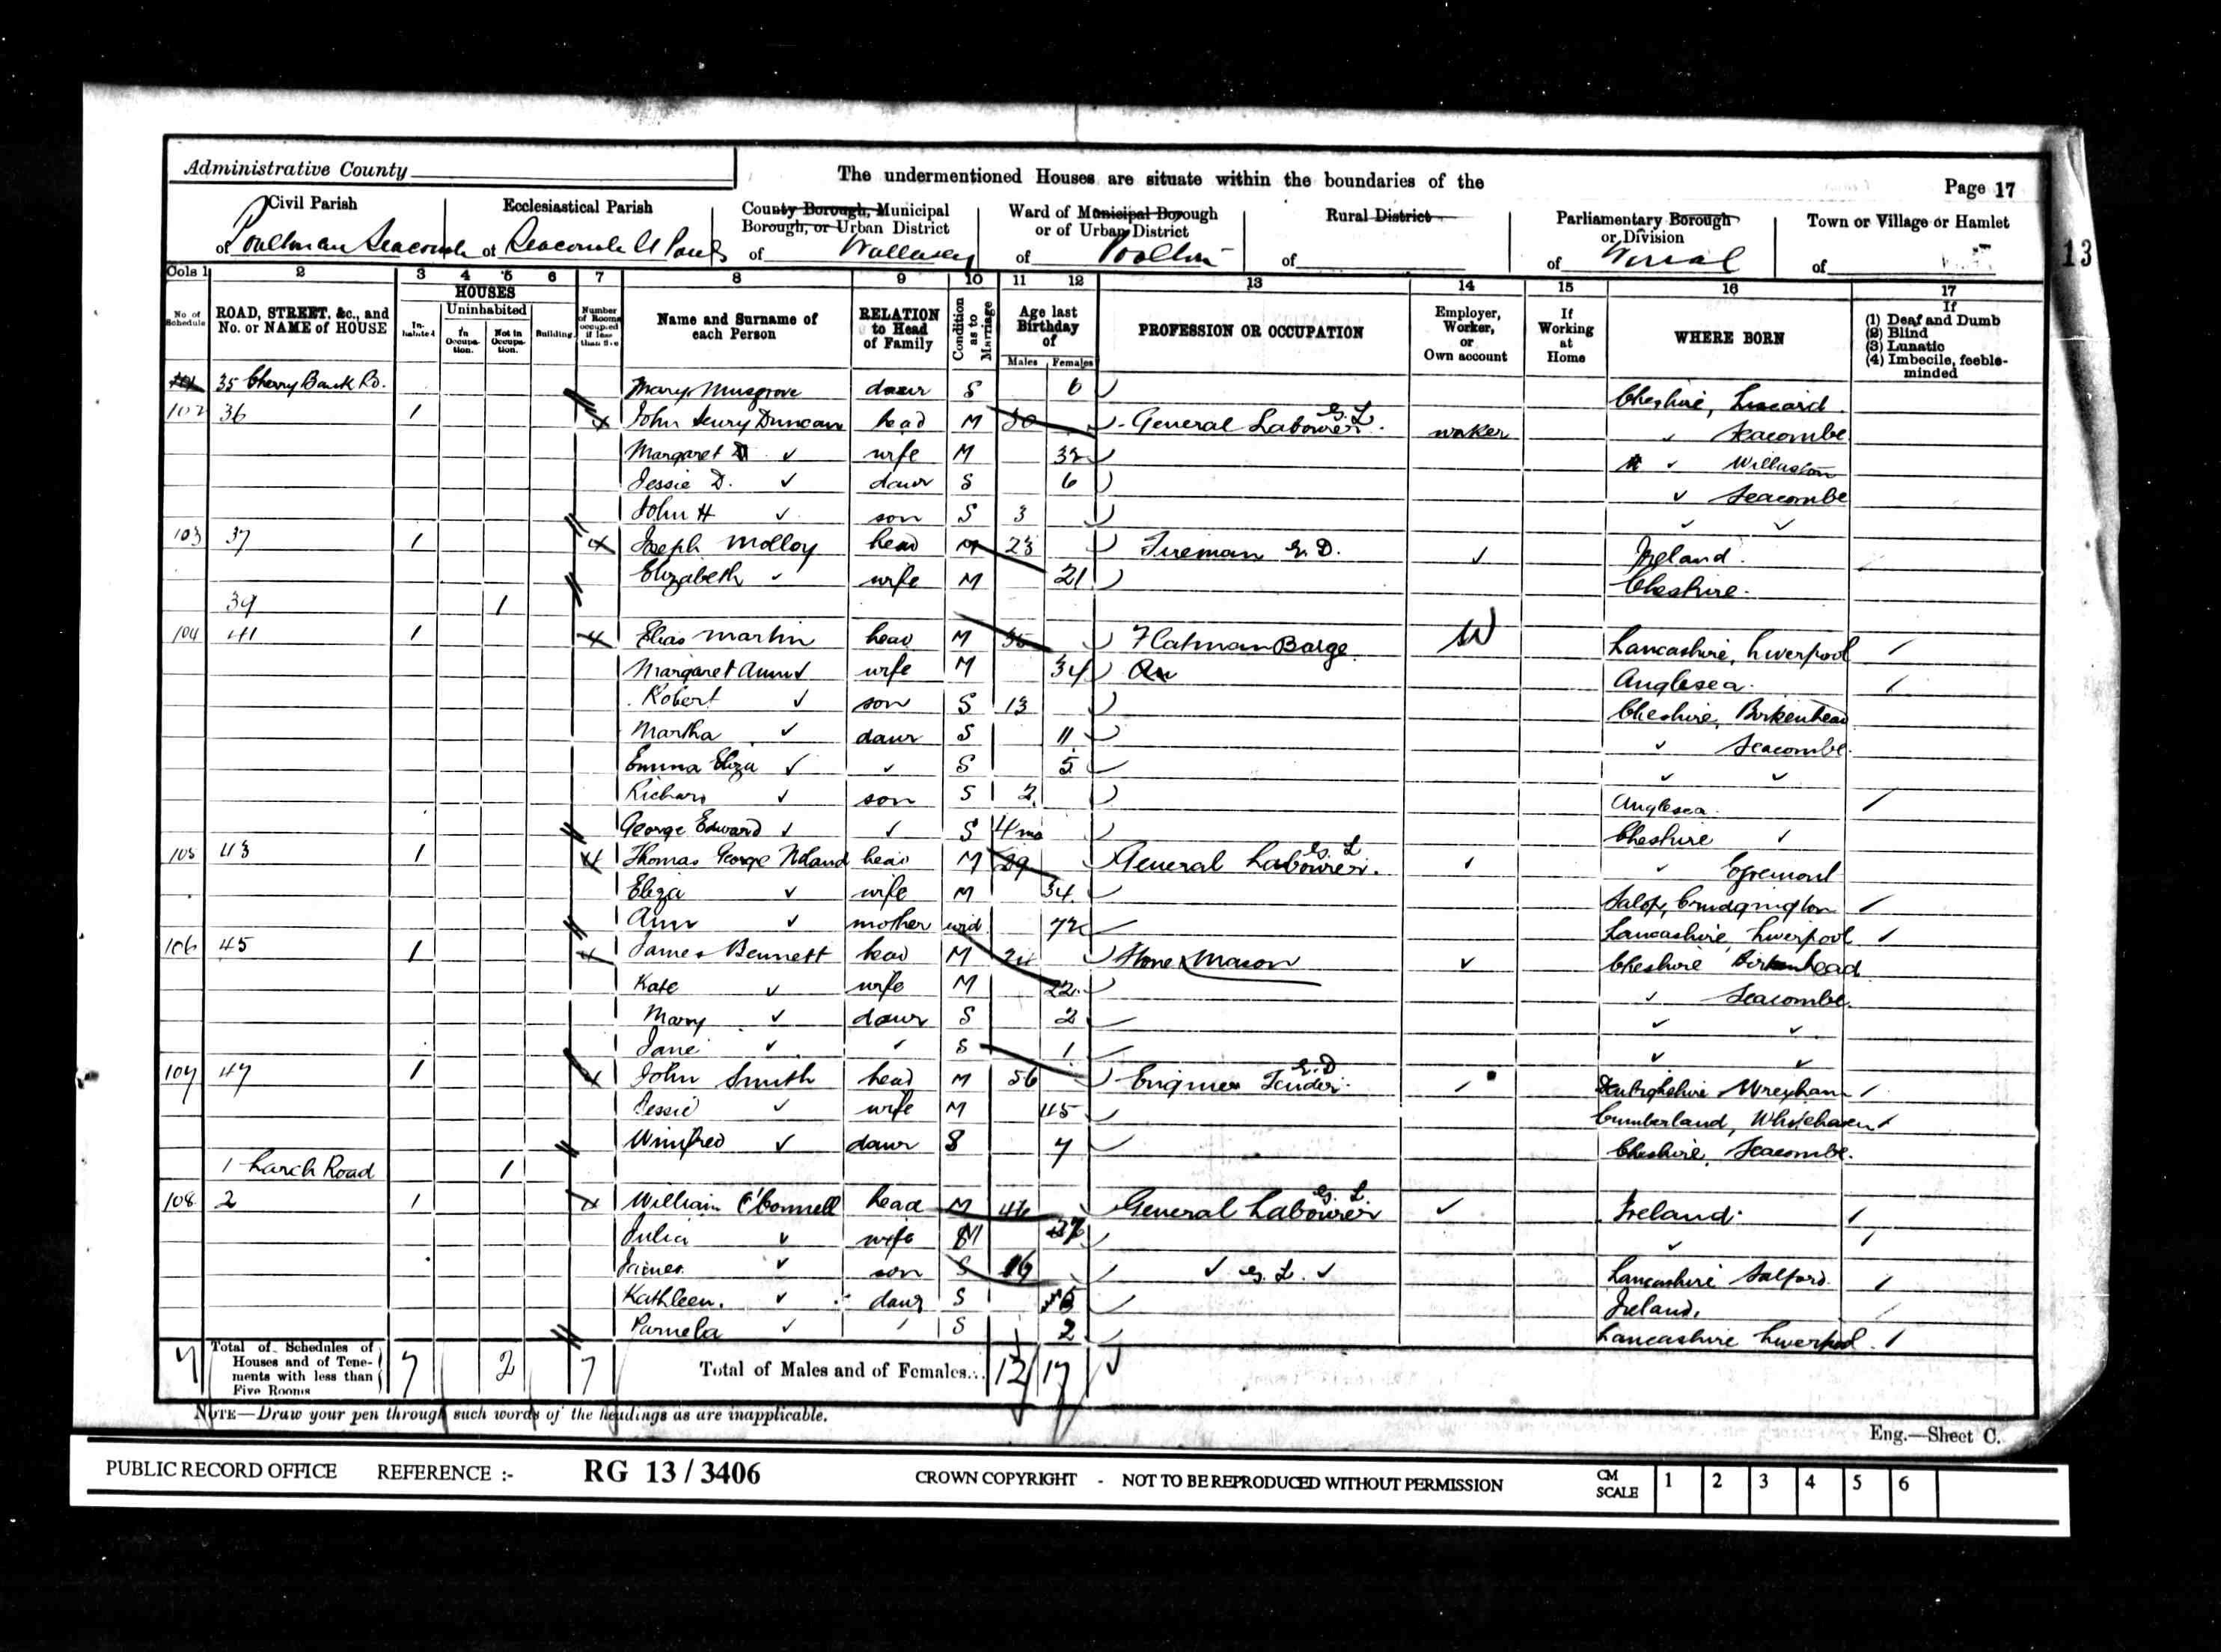 Administrative County
The undermentioned Houses are situate within the boundaries of the
Page 17
Civil Parish
Ecclesiastical Parish
County Borough, Municipal Borough, or Urban District
Ward of Municipal Borough or of Urban District
Rural District
Parliamentary Borough or Division
Town or Village or Hamlet
of Poulton cum Seacombe of Seacombe St Pauls of Wallasey of Poulton of of Wirral of
13
Cols 1 2 3 4 5 6 7 8 9 10 11 12 13 14 15 16 17
No of Schedule
ROAD, STREET, &c., and No. or NAME of HOUSE
HOUSES
Inhabited
Uninhabited
In Occupation.
Not in Occupation.
Building
Number of Rooms occupied if less than five
Name and Surname of each Person
RELATION to Head of Family
Condition as to Marriage
Age last Birthday of
Males Females
PROFESSION OR OCCUPATION
Employer, Worker, or Own account
If Working at Home
WHERE BORN
If
(1) Deaf and Dumb
(2) Blind
(3) Lunatic
(4) Imbecile, feeble-minded
35 Cherry Bank Rd. Mary Musgrove daur S 6 Cheshire, Liscard
102 36 1 4 John Henry Duncan head M 30 General Labourer G. L. worker ✓ Seacombe
Margaret D ✓ wife M 32 ✓ Willaston
Jessie D. ✓ daur S 6 ✓ Seacombe
John H ✓ son S 3 ✓ ✓
103 37 1 4 Joseph Molloy head M 23 Fireman G. D. ✓ Ireland.
Elizabeth ✓ wife M 21 Cheshire.
39 1
104 41 1 4 Elias Martin head M 35 Flatman Barge W Lancashire, Liverpool
Margaret Ann ✓ wife M 34 Anglesea.
Robert ✓ son S 13 Cheshire, Birkenhead
Martha ✓ daur S 11 ✓ Seacombe.
Emma Eliza ✓ ✓ S 5 ✓ ✓
Richard ✓ son S 2 Anglesea.
George Edward ✓ ✓ S 4 mo Cheshire ✓
105 43 1 4 Thomas George Noland head M 29 General Labourer. G. L ✓ Egremont
Eliza ✓ wife M 34 Salop, Crudgington
Ann ✓ mother wid 72 Lancashire, Liverpool
106 45 1 4 James Bennett head M 24 Stone Mason ✓ Cheshire Birkenhead
Kate ✓ wife M 22 ✓ Seacombe.
Mary ✓ daur S 2 ✓ ✓
Jane ✓ ✓ S 1 ✓ ✓
107 47 1 4 John Smith head M 56 Engine Tender. Denbighshire Wrexham
Jessie ✓ wife M 45 Cumberland, Whitehaven
Winifred ✓ daur S 7 Cheshire, Seacombe.
1 Larch Road 1
108 2 1 4 William O'Connell head M 46 General Labourer G. L. ✓ Ireland.
Julia ✓ wife M 37 ✓
James ✓ son S 16 ✓ G. L. ✓ Lancashire Salford.
Kathleen. ✓ daur S Ireland.
Pamela ✓ S 2 Lancashire Liverpool.
7 Total of Schedules of Houses and of Tenements with less than Five Rooms 7 2 7 Total of Males and of Females... 13 17
NOTE—Draw your pen through such words of the headings as are inapplicable.
Eng.—Sheet C.
PUBLIC RECORD OFFICE REFERENCE :- RG 13/3406 CROWN COPYRIGHT - NOT TO BE REPRODUCED WITHOUT PERMISSION CM SCALE 1 2 3 4 5 6